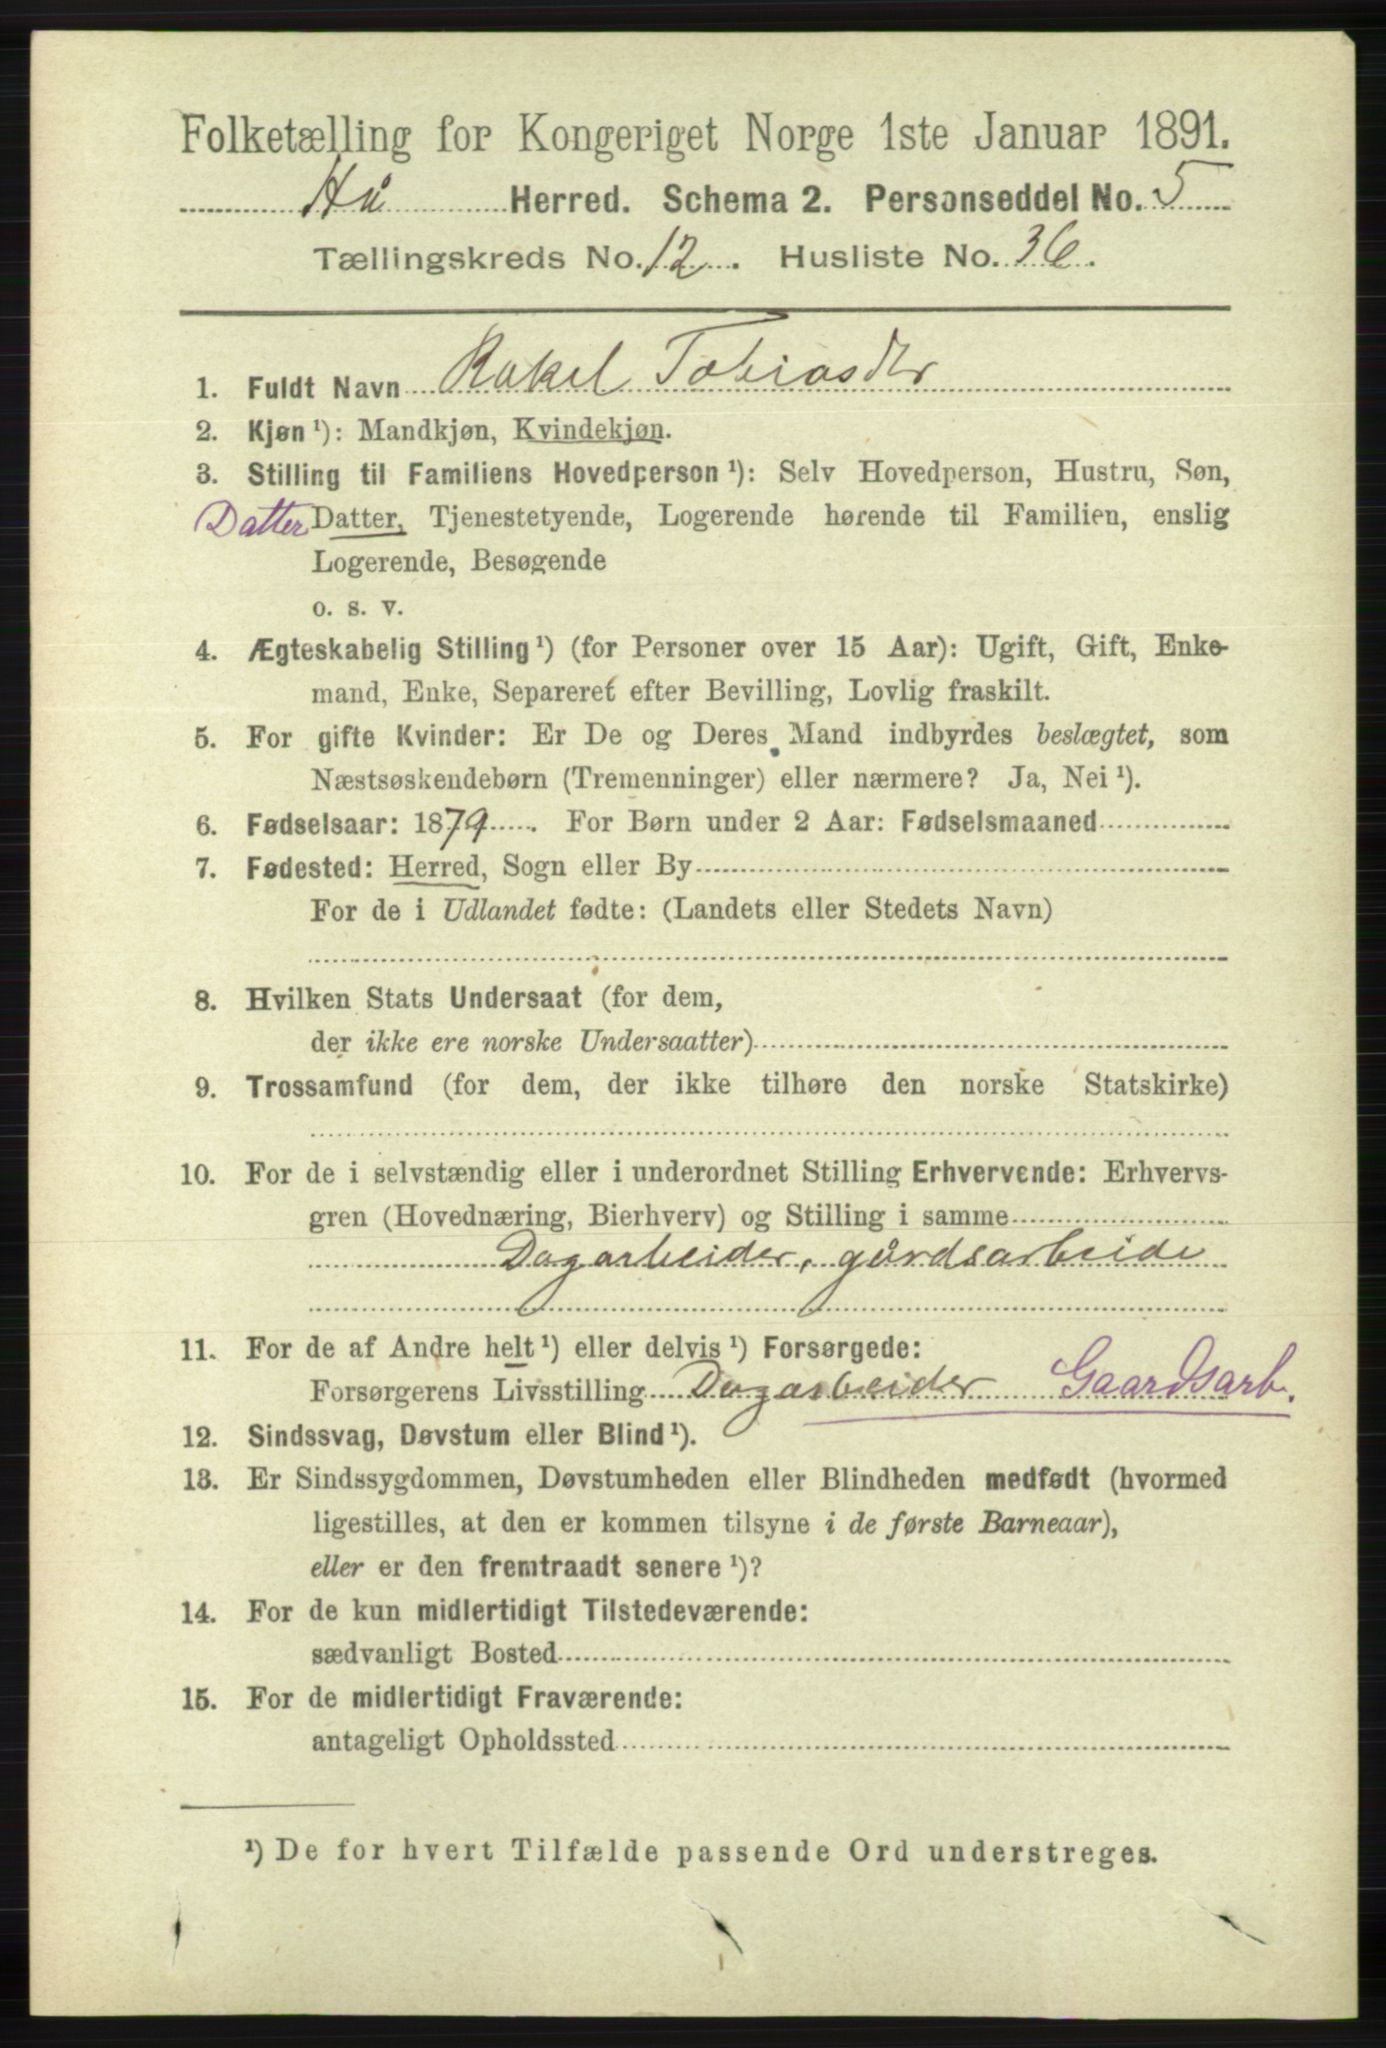 Folketælling for Kongeriget Norge 1ste Januar 1891.
Hå Herred. Schema 2. Personseddel No. 5
Tællingskreds No. 12. Husliste No. 36.
1. Fuldt Navn Rakel Tobiasdtr
2. Kjøn ¹): Mandkjøn, Kvindekjøn.
3. Stilling til Familiens Hovedperson ¹): Selv Hovedperson, Hustru, Søn,
Datter Datter, Tjenestetyende, Logerende hørende til Familien, enslig
Logerende, Besøgende
o. s. v.
4. Ægteskabelig Stilling ¹) (for Personer over 15 Aar): Ugift, Gift, Enke-
mand, Enke, Separeret efter Bevilling, Lovlig fraskilt.
5. For gifte Kvinder: Er De og Deres Mand indbyrdes beslægtet, som
Næstsøskendebørn (Tremenninger) eller nærmere? Ja, Nei ¹).
6. Fødselsaar: 1879. For Børn under 2 Aar: Fødselsmaaned
7. Fødested: Herred, Sogn eller By
For de i Udlandet fødte: (Landets eller Stedets Navn)
8. Hvilken Stats Undersaat (for dem,
der ikke ere norske Undersaatter)
9. Trossamfund (for dem, der ikke tilhøre den norske Statskirke)
10. For de i selvstændig eller i underordnet Stilling Erhvervende: Erhvervs-
gren (Hovednæring, Bierhverv) og Stilling i samme
Dagarbeider, gårdsarbeide
11. For de af Andre helt ¹) eller delvis ¹) Forsørgede:
Forsørgerens Livsstilling Dagarbeider Gaardsarb.
12. Sindssvag, Døvstum eller Blind ¹).
13. Er Sindssygdommen, Døvstumheden eller Blindheden medfødt (hvormed
ligestilles, at den er kommen tilsyne i de første Barneaar),
eller er den fremtraadt senere ¹)?
14. For de kun midlertidigt Tilstedeværende:
sædvanligt Bosted
15. For de midlertidigt Fraværende:
antageligt Opholdssted
¹) De for hvert Tilfælde passende Ord understreges.